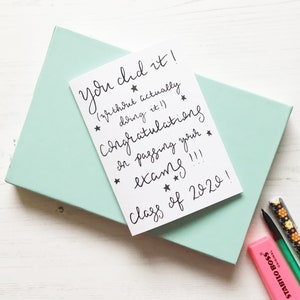 You did it!
(without actually
doing it!)
Congratulations
on passing your
exams!!!
Class of 2020!
STABILO BOSS